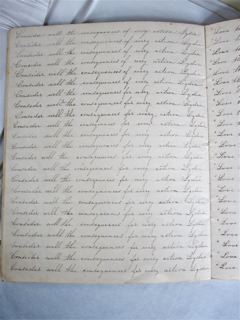 Consider well the consequences of every action Lydia
Consider well the consequences of every action Lydia
Consider well the consequences of every action Lydia
Consider well the consequences of every action Lydia
Consider well the consequences of every action Lydia
Consider well the consequences of every action Lydia
Consider well the consequences for every action Lydia
Consider well the consequences for every action Lydia
Consider well the consequences for every action Lydia
Consider well the consequences for every action Lydia
Consider well the consequences for every action Lydia
Consider well the consequences for every action Lydia
Consider well the consequences for every action Lydia
Consider well the consequences for every action Lydia
Consider well the consequences for every action Lydia
Consider well the consequences for every action Lydia
Consider well the consequences for every action Lydia
Consider well the consequences for every action Lydia
Consider well the consequences for every action Lydia
Consider well the consequences for every action Lydia
Consider well the consequences for every action Lydia
Consider well the consequences for every action Lydia
Consider well the consequences for every action Lydia
Love
Love
Love
Love
Love
Love
Love
Love
Love
Love
Love
Love
Love
Love
Love
Love
Love
Love
Love
Love